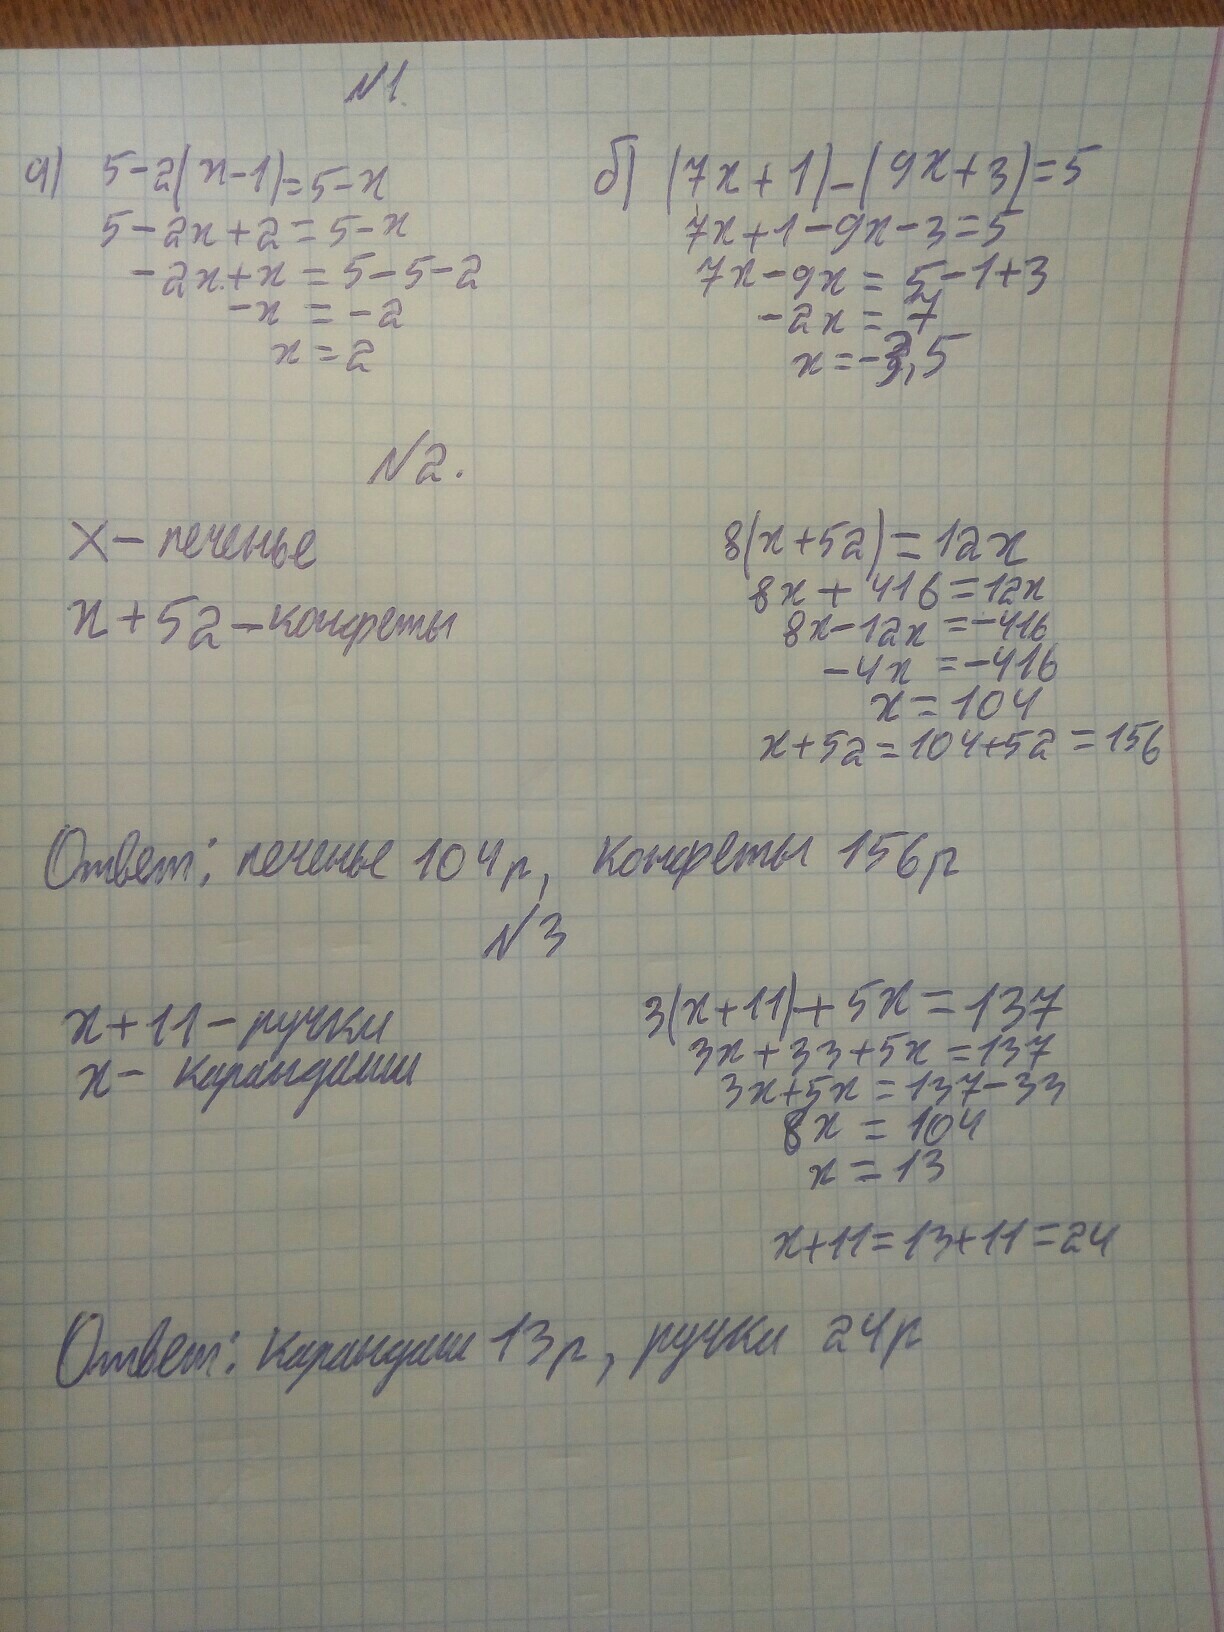 №1.
а) 5-2(x-1)=5-x
5-2x+2=5-x
-2x+x=5-5-2
-x=-2
x=2
б) (7x+1)-(9x+3)=5
7x+1-9x-3=5
7x-9x=5-1+3
-2x=7
x=-3,5
№2.
x-печенье
x+52-конфеты
8(x+52)=12x
8x+416=12x
8x-12x=-416
-4x=-416
x=104
x+52=104+52=156
Ответ: печенье 104р, конфеты 156р
№3
x+11-ручки
x-карандаши
3(x+11)+5x=137
3x+33+5x=137
3x+5x=137-33
8x=104
x=13
x+11=13+11=24
Ответ: карандаши 13р, ручки 24р